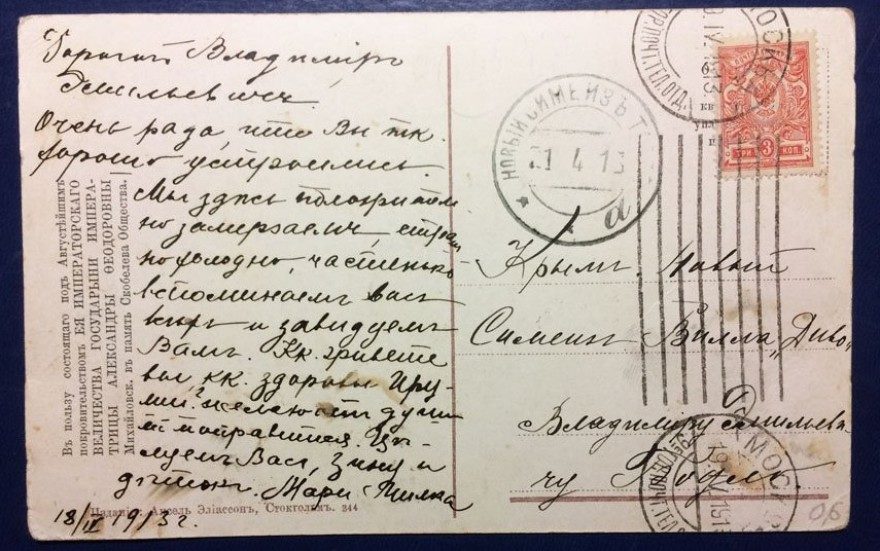 Дорогой Владимiръ
Емильевичъ
Очень рада, что Вы тк.
хорошо устроились.
Мы здѣсь положитель
но замерзаемъ, страш
но холодно, частенько
вспоминаемъ васъ
и завидуемъ
Вамъ. Кк. живете
вы, кк. здоровье
желаю отъ души
поправиться. Цѣ-
луемъ Васъ, и
дѣтокъ. Мари
18/IV 1913 г.
Въ пользу состоящаго подъ Августѣйшимъ
покровительствомъ ЕЯ ИМПЕРАТОРСКАГО
ВЕЛИЧЕСТВА ГОСУДАРЫНИ ИМПЕРА-
ТРИЦЫ АЛЕКСАНДРЫ ѲЕОДОРОВНЫ
Михайловск. въ память Скобелева Общества.
Изданiе: Аксель Элiассонъ, Стокгольмъ. 244
НОВЫЙ СИМЕИЗЪ Т
4 13
а
МОСКВА
IV 1913
ГОР.ПОЧТ.ТЕЛ.ОТД.
ТРИ 3 КОП.
Крымъ. Новый
Симеизъ Вилла „Диво"
Владимiру Емильеви-
чу
МОСКВА
06